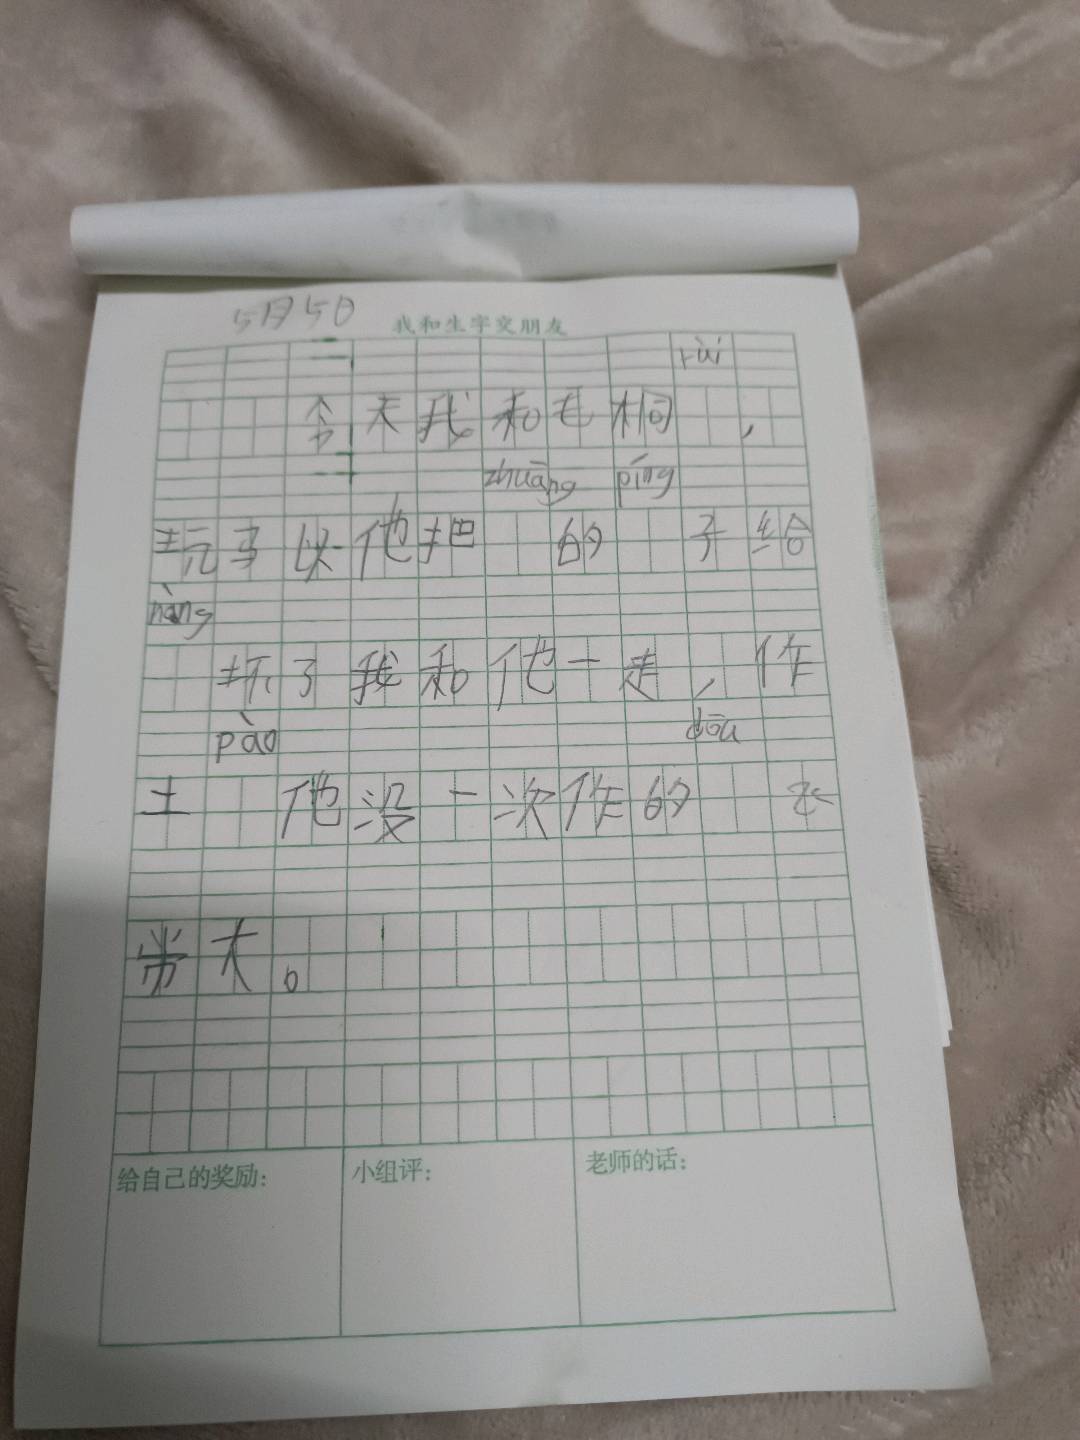 5月5日
我和生字交朋友
rùi
今天我和毛桐 ，
zhuāng píng
玩了以他把 的 子给
nàng
坏了我和他一走，作
pào dōu
土 他没一次作的 水
常大。
给自己的奖励：
小组评：
老师的话：